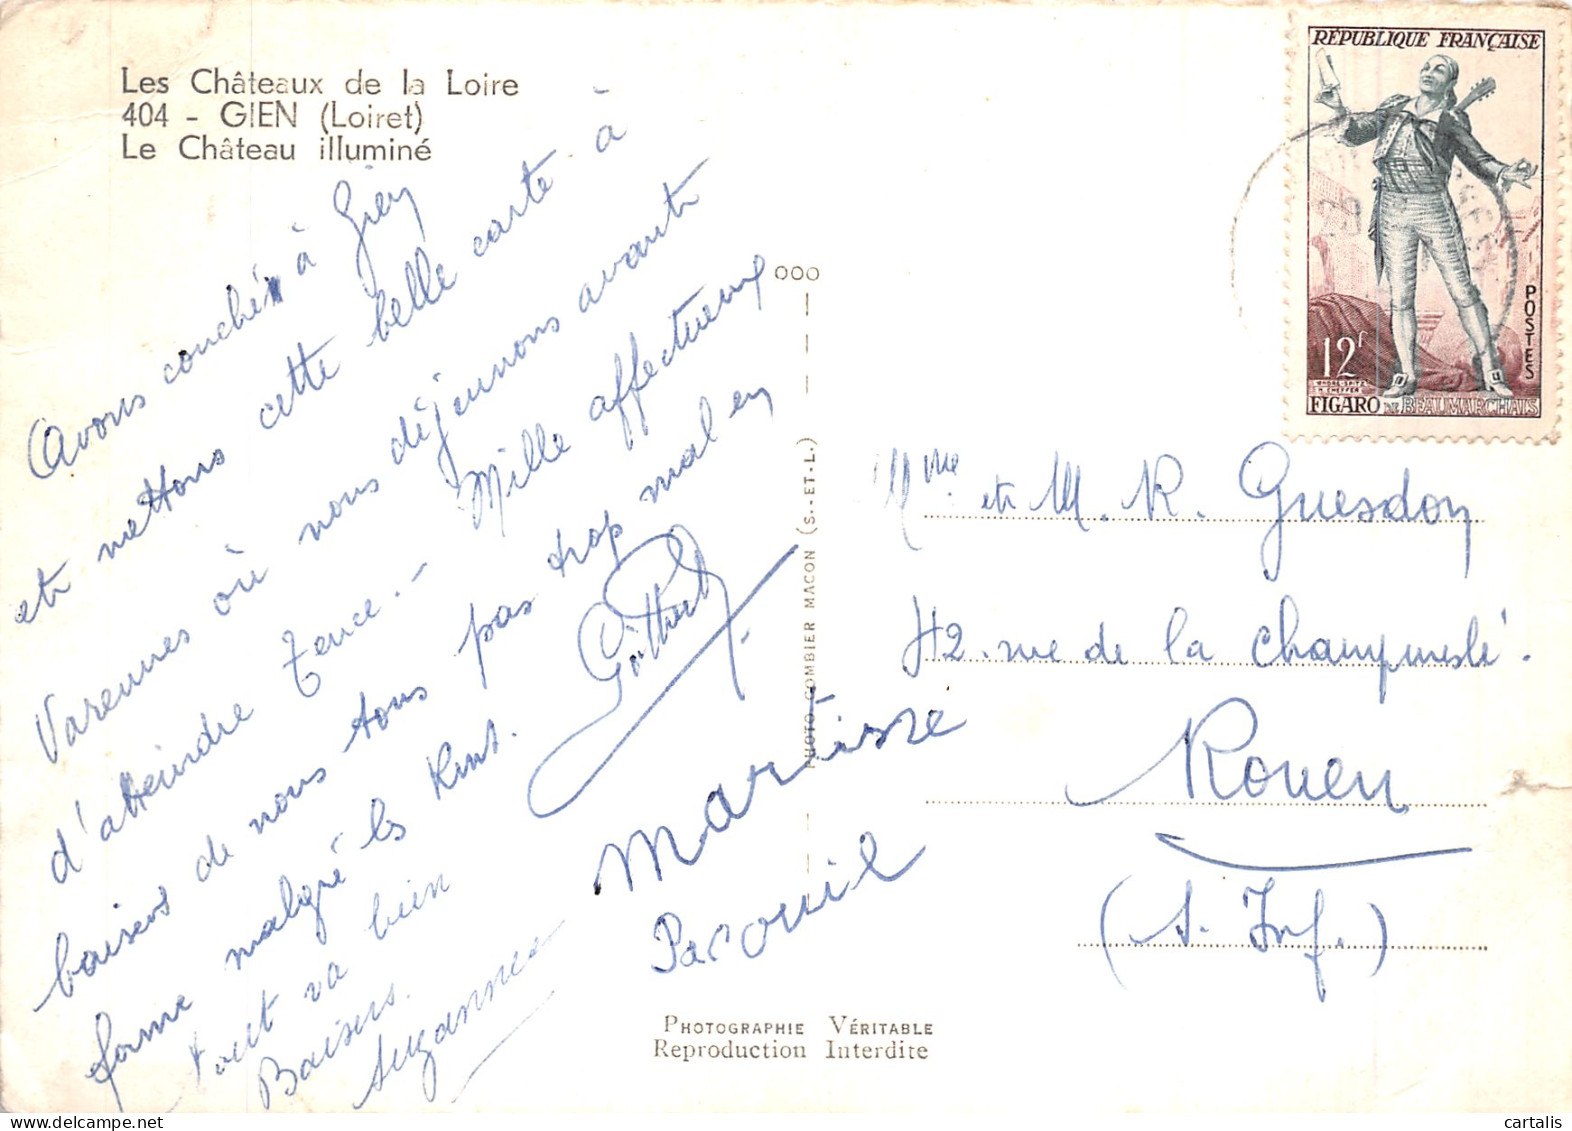 Les Châteaux de la Loire
404 - GIEN (Loiret)
Le Château illuminé
Avons couché à Gien
et mettons cette belle carte à
Varennes où nous déjeunons avant
d'atteindre Tence. - Mille affectueux
baisers de nous tous pas trop mal en
forme malgré les Kms.
tout va bien
Baisers.
Suzanne
Martisse
Pascouil
OOO
PHOTO COMBIER MACON (S.-ET-L.)
PHOTOGRAPHIE VÉRITABLE
Reproduction Interdite
RÉPUBLIQUE FRANÇAISE
POSTES
12f
FIGARO DE BEAUMARCHAIS
Mme et M. R. Guesdon
42. rue de la Champmeslé.
Rouen
(S. Inf.)
cartalis